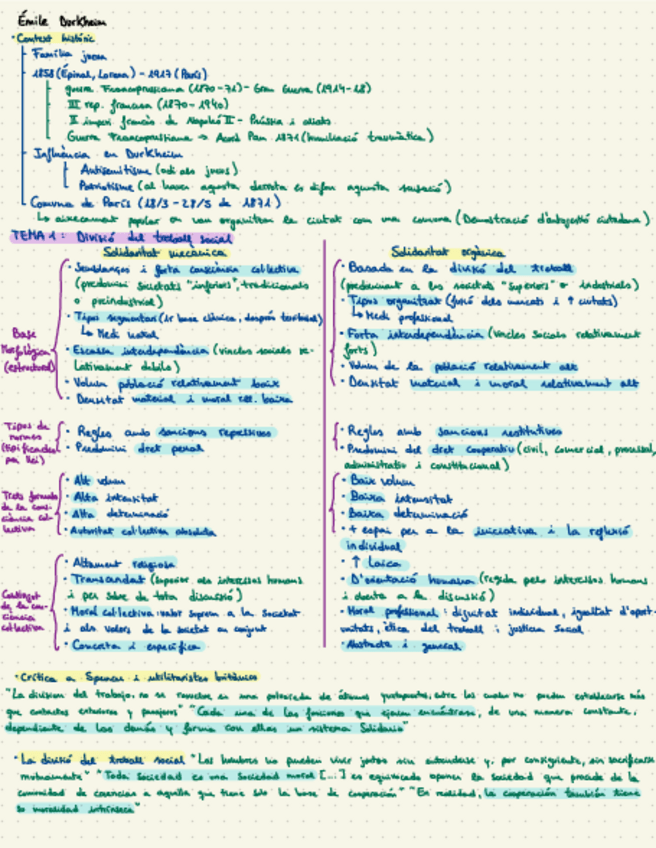 Émile Durkheim
· Context històric
Família jueva
1858 (Épinal, Lorena) - 1917 (París)
guerra Francoprussiana (1870-71) - Gran Guerra (1914-18)
III rep. francesa (1870-1940)
II imperi francès de Napoleó III - Prússia i aliats
Guerra Francoprussiana → Acord Pau 1871 (humiliació traumàtica)
Influència en Durkheim
Antisemitisme (odi als jueus)
Patriotisme (al haver aquesta derrota es difon aquesta sensació)
Comuna de París (18/3 - 28/5 de 1871)
↳ aixecament popular on van organitzar la ciutat com una comuna (Demostració d'autogestió ciutadana)
TEMA 1: Divisió del treball social
Solidaritat mecànica
Base Morfològica (estructural)
· Semblances i forta consciència col·lectiva
(predomini societats "inferiors", tradicionals
o preindustrial)
· Tipus segmentari (1r base clànica, després territorial)
↳ Medi natal
· Escassa interdependència (vincles socials re-
lativament dèbils)
· Volum població relativament baix
· Densitat material i moral rel. baixa
Tipus de normes (tipificades per llei)
· Regles amb sancions repressives
· Predomini dret penal
Trets formals de la cons-ciència col-lectiva
· Alt volum
· Alta intensitat
· Alta determinació
· Autoritat col·lectiva absoluta
Contingut de la con-ciència col·lectiva
· Altament religiosa
· Transcendent (superior als interessos humans
i per sobre de tota discussió)
· Moral col·lectiva: valor suprem a la societat
i als valors de la societat en conjunt
· Concreta i específica
Solidaritat orgànica
· Basada en la divisió del treball
(predominant a les societats "superiors" o industrials)
· Tipus organitzat (fusió dels mercats i ↑ ciutats)
↳ Medi professional
· Forta interdependència (vincles socials relativament
forts)
· Volum de la població relativament alt
· Densitat material i moral relativament alt
· Regles amb sancions restitutives
· Predomini del dret cooperatiu (civil, comercial, processal,
administratiu i constitucional)
· Baix volum
· Baixa intensitat
· Baixa determinació
· + espai per a la iniciativa i la reflexió
individual
· ↑ Laica
· D'orientació humana (regida pels interessos humans
i oberta a la discussió)
· Moral professional: dignitat individual, igualtat d'oport-
unitats, ètica del treball i justícia social
· Abstracta i general
· Crítica a Spencer i utilitaristes britànics
"La division del trabajo, no se resuelve en una polvareda de átomos yuxtapuestos, entre los cuales no pueden establecerse más
que contactos exteriores y pasajeros" "Cada una de las funciones que ejercen encuéntrase, de una manera constante,
dependiente de las demás y forma con ellas un sistema Solidario"
· La divisió del treball social "Los hombres no pueden vivir juntos sin entenderse y, por consiguiente, sin sacrificarse
mutuamente" "Toda Sociedad es una Sociedad moral [...] es equivocado oponer la sociedad que procede de la
comunidad de creencias a aquella que tiene sólo la base de cooperación" "En realidad, la cooperación también tiene
su moralidad intrínseca"